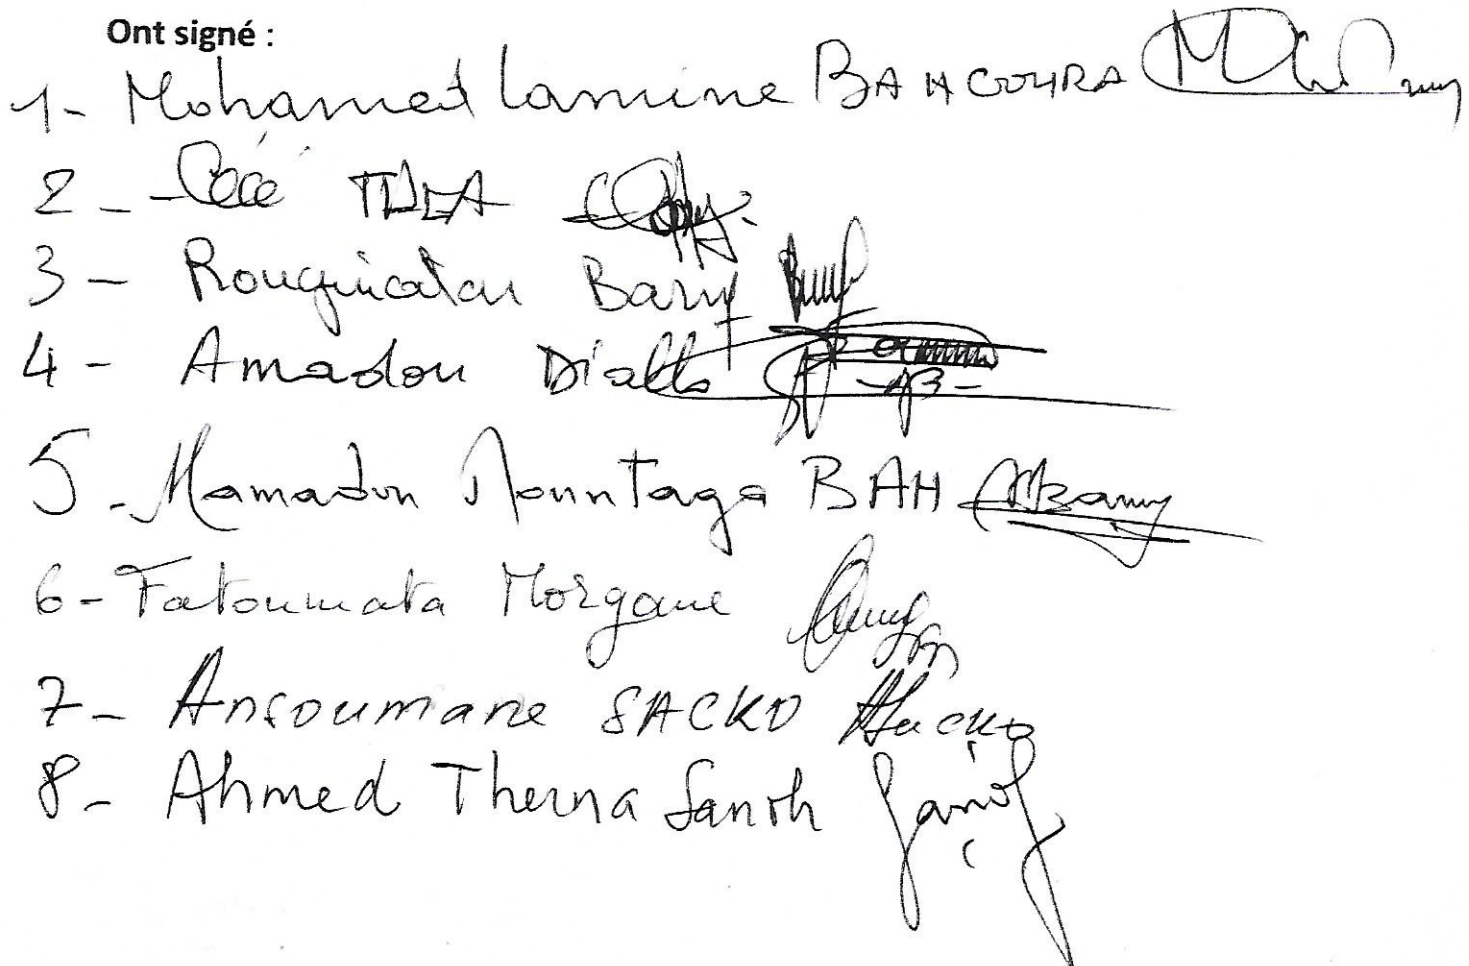 Ont signé :
1- Mohamed Lamine BAHCOURA
2 - Cécé
3 - Rouguiatou Bary
4 - Amadou Diallo
5 - Mamadou Mountaga BAH
6 - Fatoumata Morgane
7 - Ansoumane SACKO Sacko
8 - Ahmed Therna Sanoh Sanoh